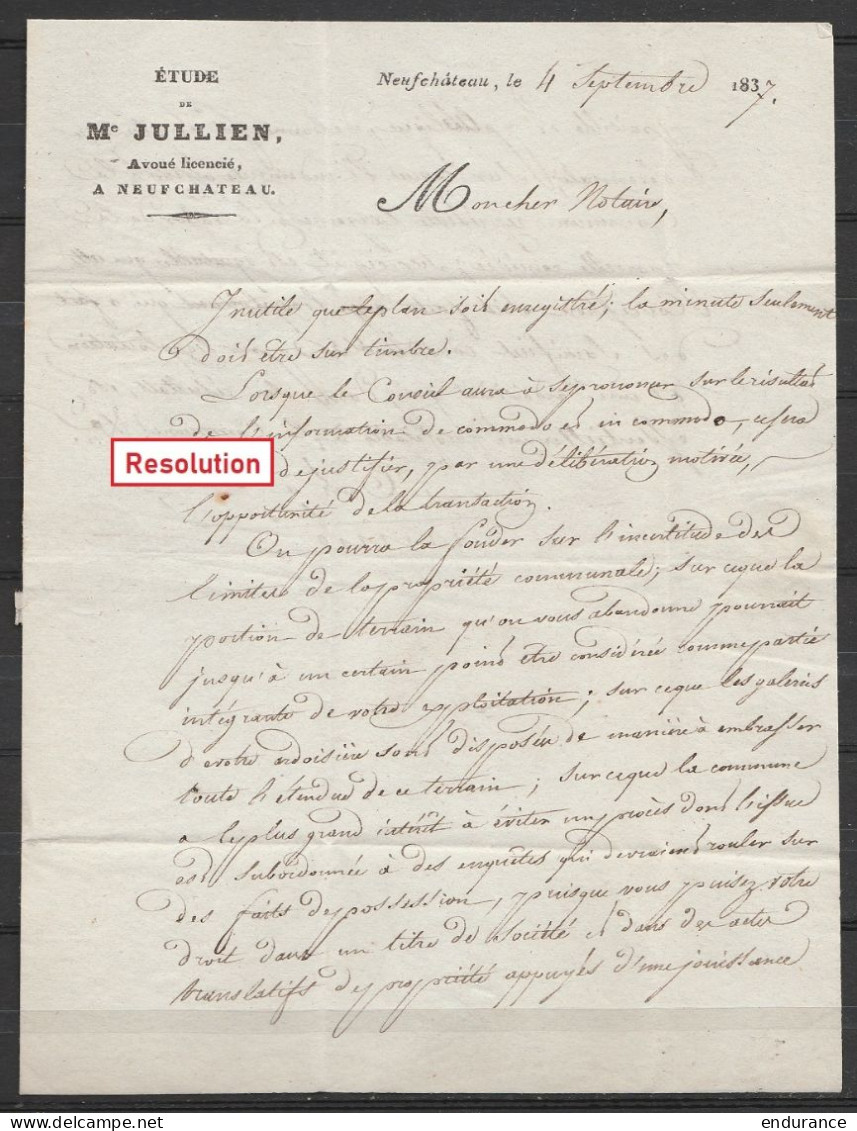 ÉTUDE
DE
Me JULLIEN,
Avoué licencié,
A NEUFCHATEAU.
Neufchâteau, le 4 Septembre 1837.
Moncher Notaire,
Inutile que le plan soit enregistré; la minute seulement
doit être sur timbre.
Lorsque le Conseil aura à se prononcer sur le résultat
de l'information de commodo et incommodo, ce sera
Resolution
de justifier, par une délibération motivée,
l'opportunité de la transaction.
On pourra la fonder sur l'incertitude des
limites de la propriété communale; sur ce que la
portion de terrain qu'on vous abandonne pourrait
jusqu'à un certain point être considérée comme partie
intégrante de votre exploitation; sur ce que les galeries
d'votre ardoisière sont disposées de manière à embrasser
toute l'étendue de ce terrain; sur ce que la commune
a le plus grand intérêt à éviter un procès dont l'issue
est subordonnée à des enquêtes qui devraient rouler sur
des faits de possession, puisque vous puisez votre
droit dans un titre de société et dans des actes
translatifs de propriété appuyés d'une jouissance
endurance